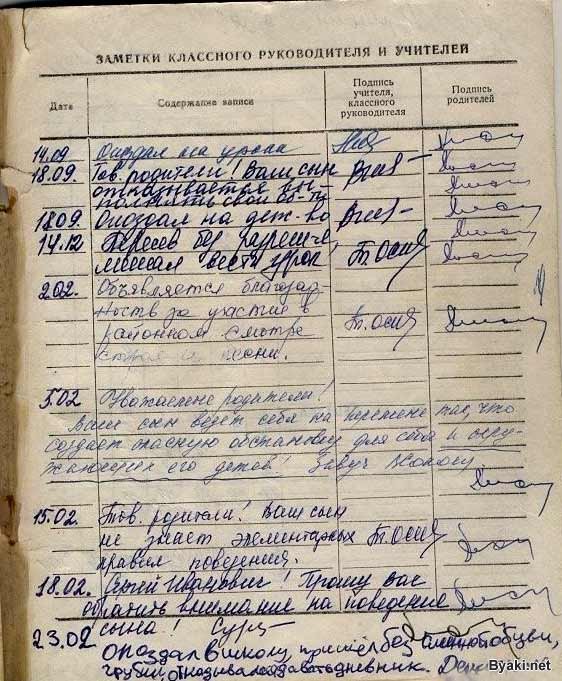 ЗАМЕТКИ КЛАССНОГО РУКОВОДИТЕЛЯ И УЧИТЕЛЕЙ
Дата Содержание записи Подпись учителя, классного руководителя Подпись родителей
14.09 Опоздал на уроки
18.09. Тов. родители! Ваш сын
отказывается вы-
полнить свои об-ти
18.09. Опоздал на деж-во
14.12 Пересев без разреш-я,
мешал вести урок. Т. Осия
2.02. Объявляется благодар-
ность за участие в
районном смотре Т. Осия
строя и песни.
5.02 Уважаемые родители!
Ваш сын ведет себя на перемене так, что
создает опасную обстановку для себя и окру-
жающих его детей! Завуч
15.02. Тов. родители! Ваш сын
не знает элементарных Т. Осия
правил поведения.
18.02. Сергей Иванович! Прошу Вас
обратить внимание на поведение
сына!
23.02 опоздал в школу, пришёл без сменной обуви,
грубил, отказывался давать дневник.
Byaki.net